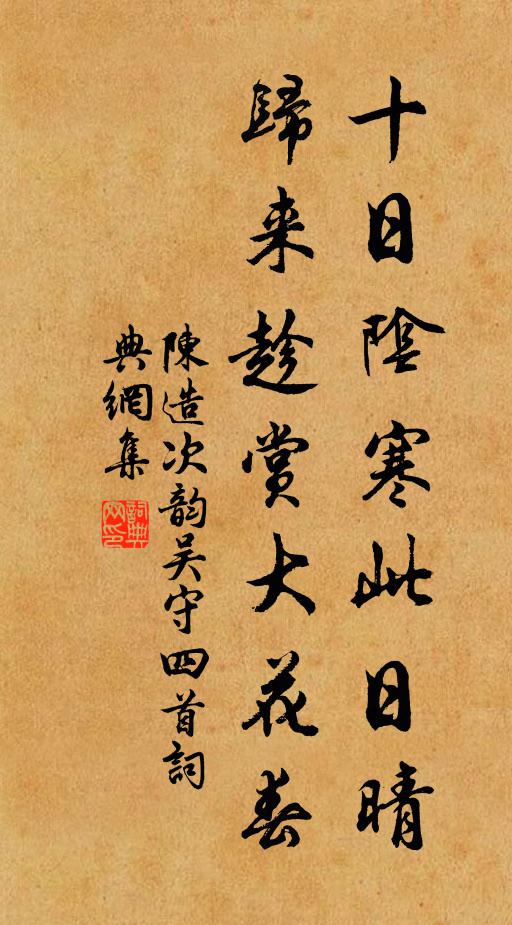 十日陰寒此日晴
歸来趁賞大花春
陳造次韵吴守四首詞
典網集
詞典網印